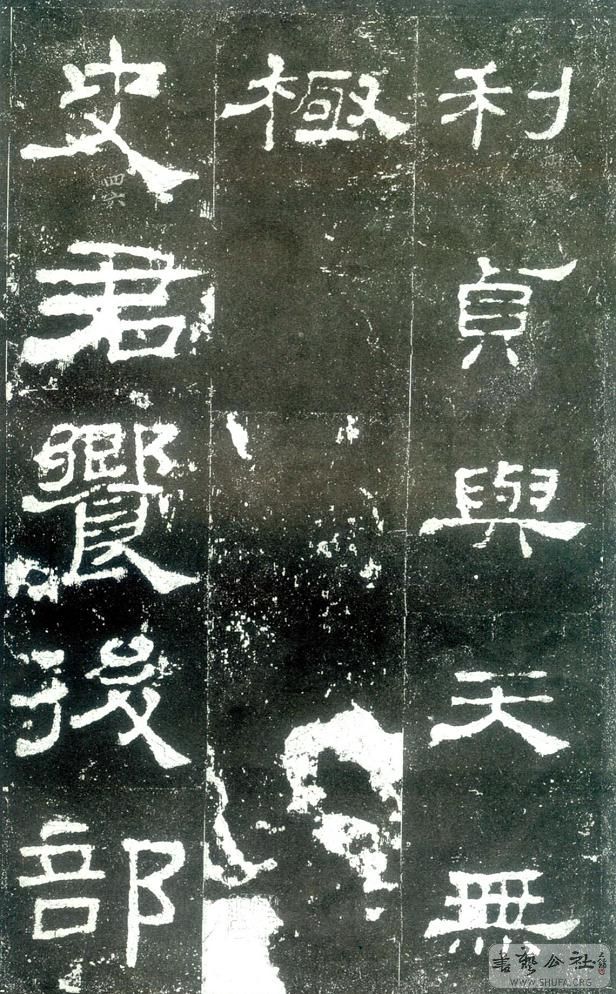 利貞與天無
極
史君饗後部
四六
書藝公社
WWW.SHUFA.ORG